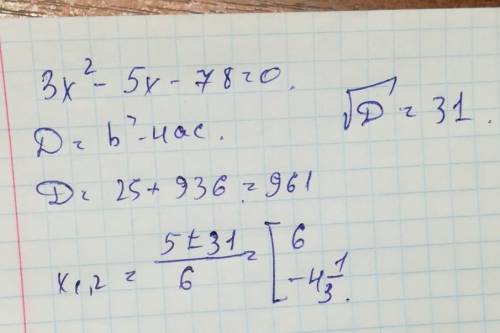 3x² - 5x - 78 = 0.
D = b² - 4ac.
√D = 31.
D = 25 + 936 = 961
x₁,₂ = (5 ± 31)/6 = [ 6
-4 1/3.